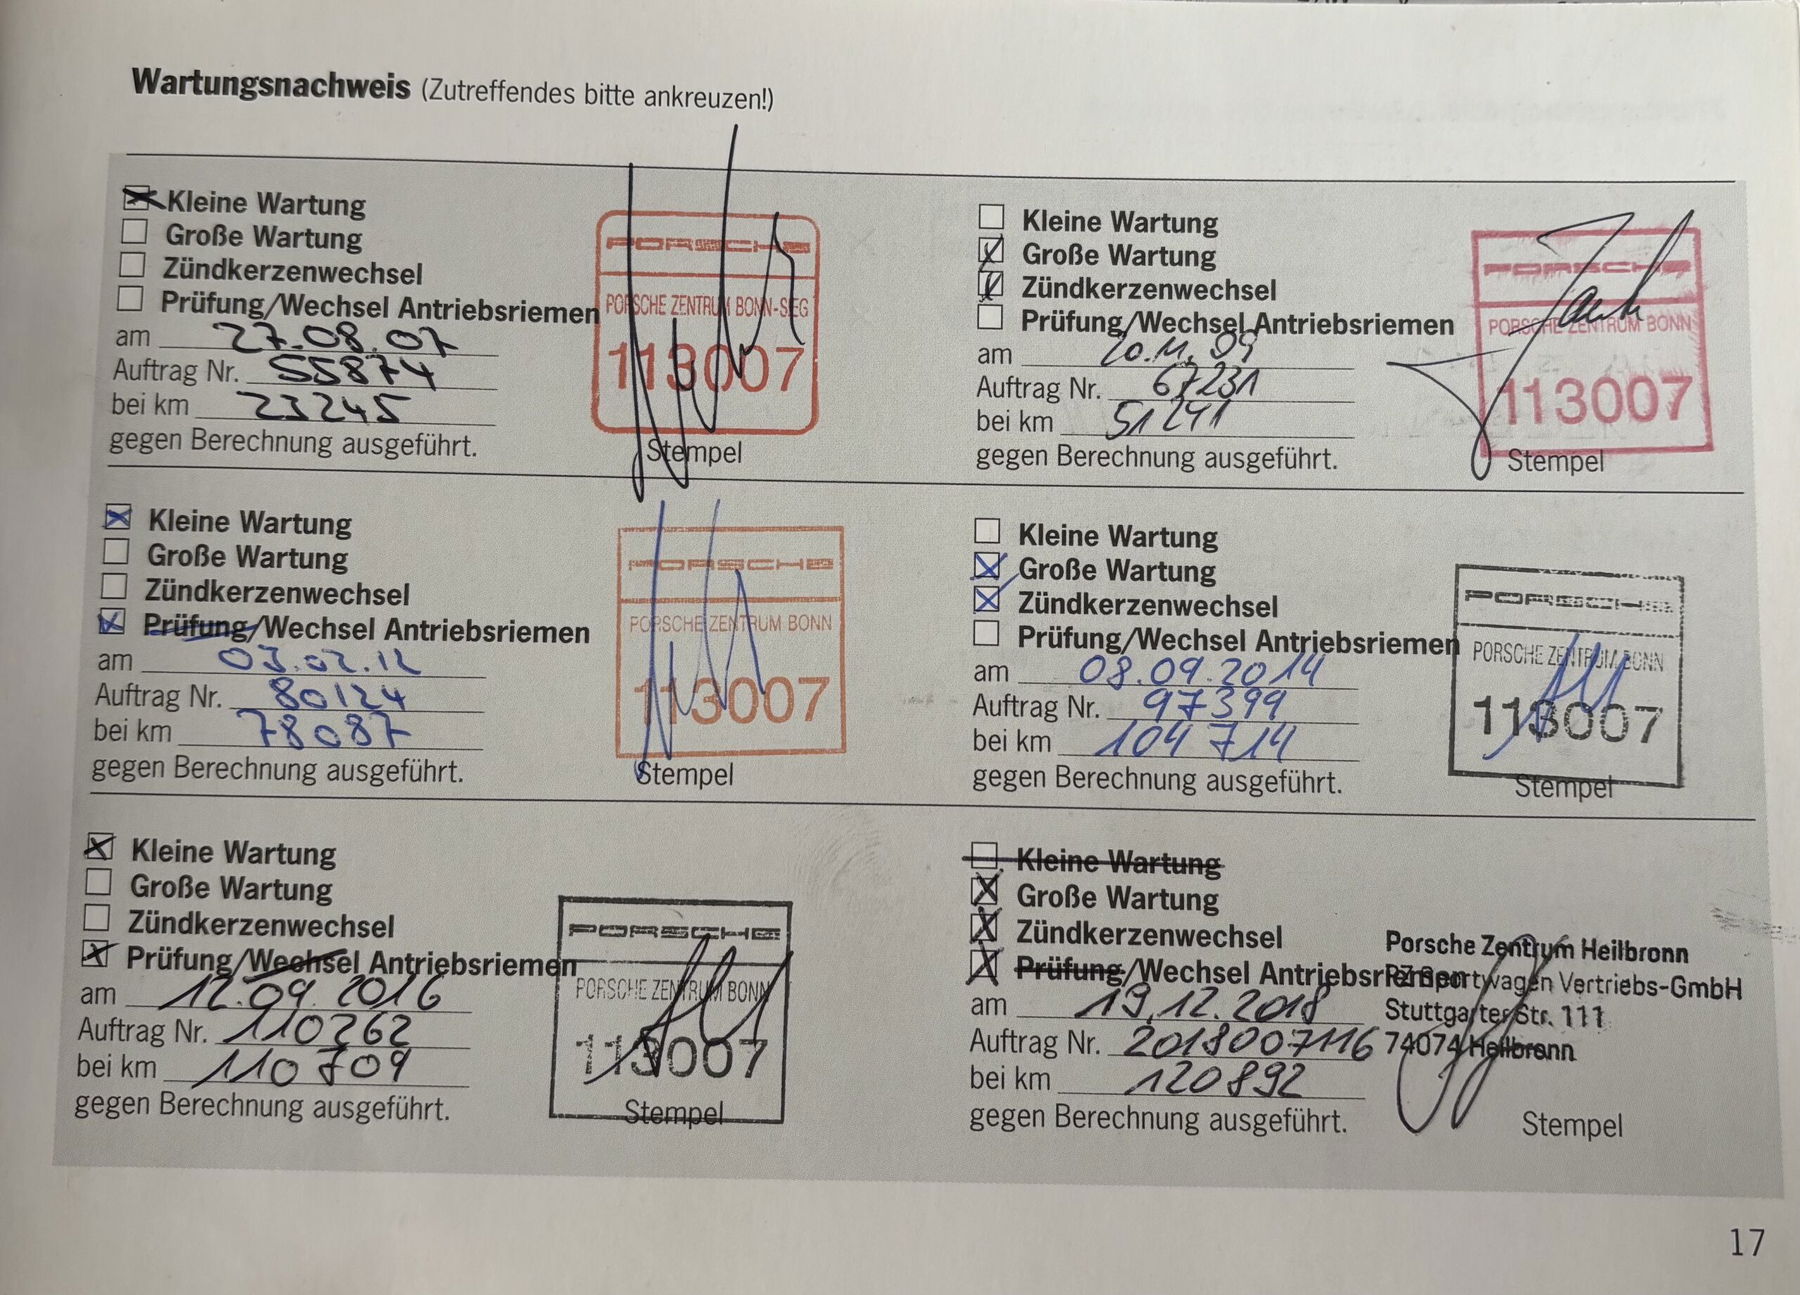 Wartungsnachweis (Zutreffendes bitte ankreuzen!)
Kleine Wartung
Große Wartung
Zündkerzenwechsel
Prüfung/Wechsel Antriebsriemen
am 27.08.07
Auftrag Nr. 55874
bei km 23245
gegen Berechnung ausgeführt.
PORSCHE
PORSCHE ZENTRUM BONN-SIEG
113007
Stempel
Kleine Wartung
Große Wartung
Zündkerzenwechsel
Prüfung/Wechsel Antriebsriemen
am 20.11.09
Auftrag Nr. 67231
bei km 51241
gegen Berechnung ausgeführt.
PORSCHE
PORSCHE ZENTRUM BONN
113007
Stempel
Kleine Wartung
Große Wartung
Zündkerzenwechsel
Prüfung/Wechsel Antriebsriemen
am 03.02.12
Auftrag Nr. 80124
bei km 78087
gegen Berechnung ausgeführt.
PORSCHE
PORSCHE ZENTRUM BONN
113007
Stempel
Kleine Wartung
Große Wartung
Zündkerzenwechsel
Prüfung/Wechsel Antriebsriemen
am 08.09.2014
Auftrag Nr. 97399
bei km 104714
gegen Berechnung ausgeführt.
PORSCHE
PORSCHE ZENTRUM BONN
113007
Stempel
Kleine Wartung
Große Wartung
Zündkerzenwechsel
Prüfung/Wechsel Antriebsriemen
am 12.09.2016
Auftrag Nr. 110262
bei km 110709
gegen Berechnung ausgeführt.
PORSCHE
PORSCHE ZENTRUM BONN
113007
Stempel
Kleine Wartung
Große Wartung
Zündkerzenwechsel
Prüfung/Wechsel Antriebsriemen
am 19.12.2018
Auftrag Nr. 2018007116
bei km 120892
gegen Berechnung ausgeführt.
Porsche Zentrum Heilbronn
PZ Sportwagen Vertriebs-GmbH
Stuttgarter Str. 111
74074 Heilbronn
Stempel
17